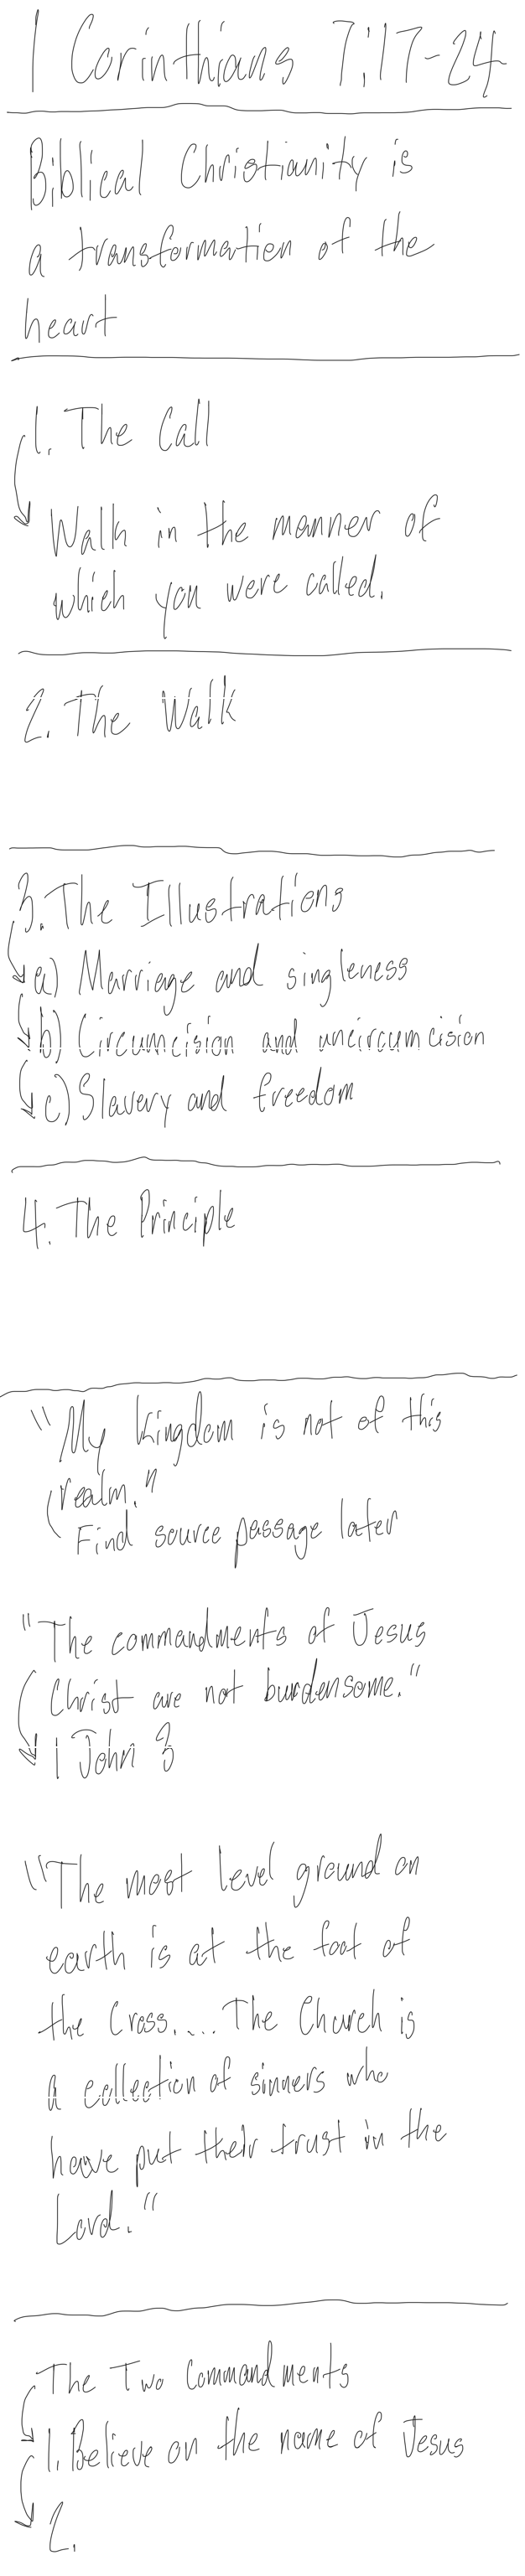 1 Corinthians 7:17-24
Biblical Christianity is
a transformation of the
heart
1. The Call
Walk in the manner of
which you were called.
2. The Walk
3. The Illustrations
a) Marriage and singleness
b) Circumcision and uncircumcision
c) Slavery and freedom
4. The Principle
"My kingdom is not of this
realm."
Find source passage later
"The commandments of Jesus
Christ are not burdensome."
1 John 3
"The most level ground on
earth is at the foot of
the Cross.... The Church is
a collection of sinners who
have put their trust in the
Lord."
The Two Commandments
1. Believe on the name of Jesus
2.